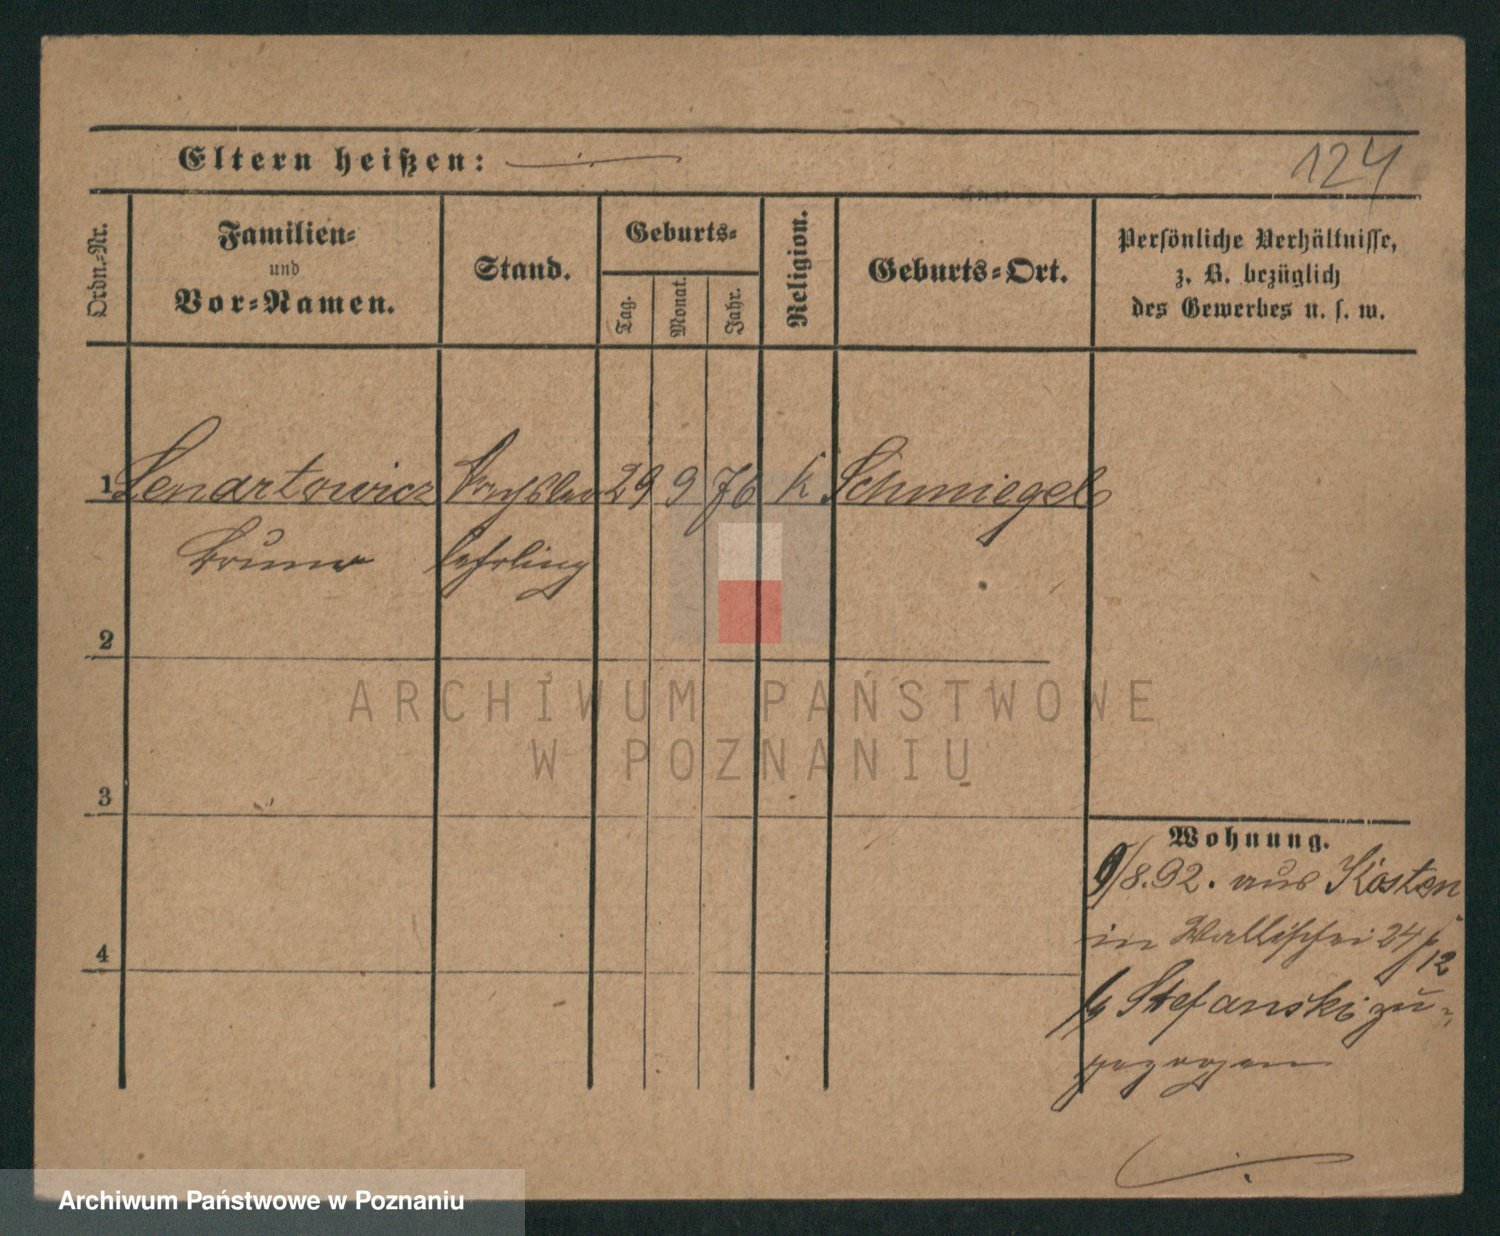 124
Eltern heißen:
Ordn.-Nr.
Familien-
und
Vor-Namen.
Stand.
Geburts-
Tag.
Monat.
Jahr.
Religion.
Geburts-Ort.
Persönliche Verhältnisse,
z. B. bezüglich
des Gewerbes u. s. w.
1 Lenartowicz 29 9 76 k Schmiegel
Bruno lehrling
2
3
4
Wohnung.
9/8.92. aus Kosten
in Wallischei 24/12
Stefanski zu-
gezogen
ARCHIWUM PAŃSTWOWE
W POZNANIU
Archiwum Państwowe w Poznaniu